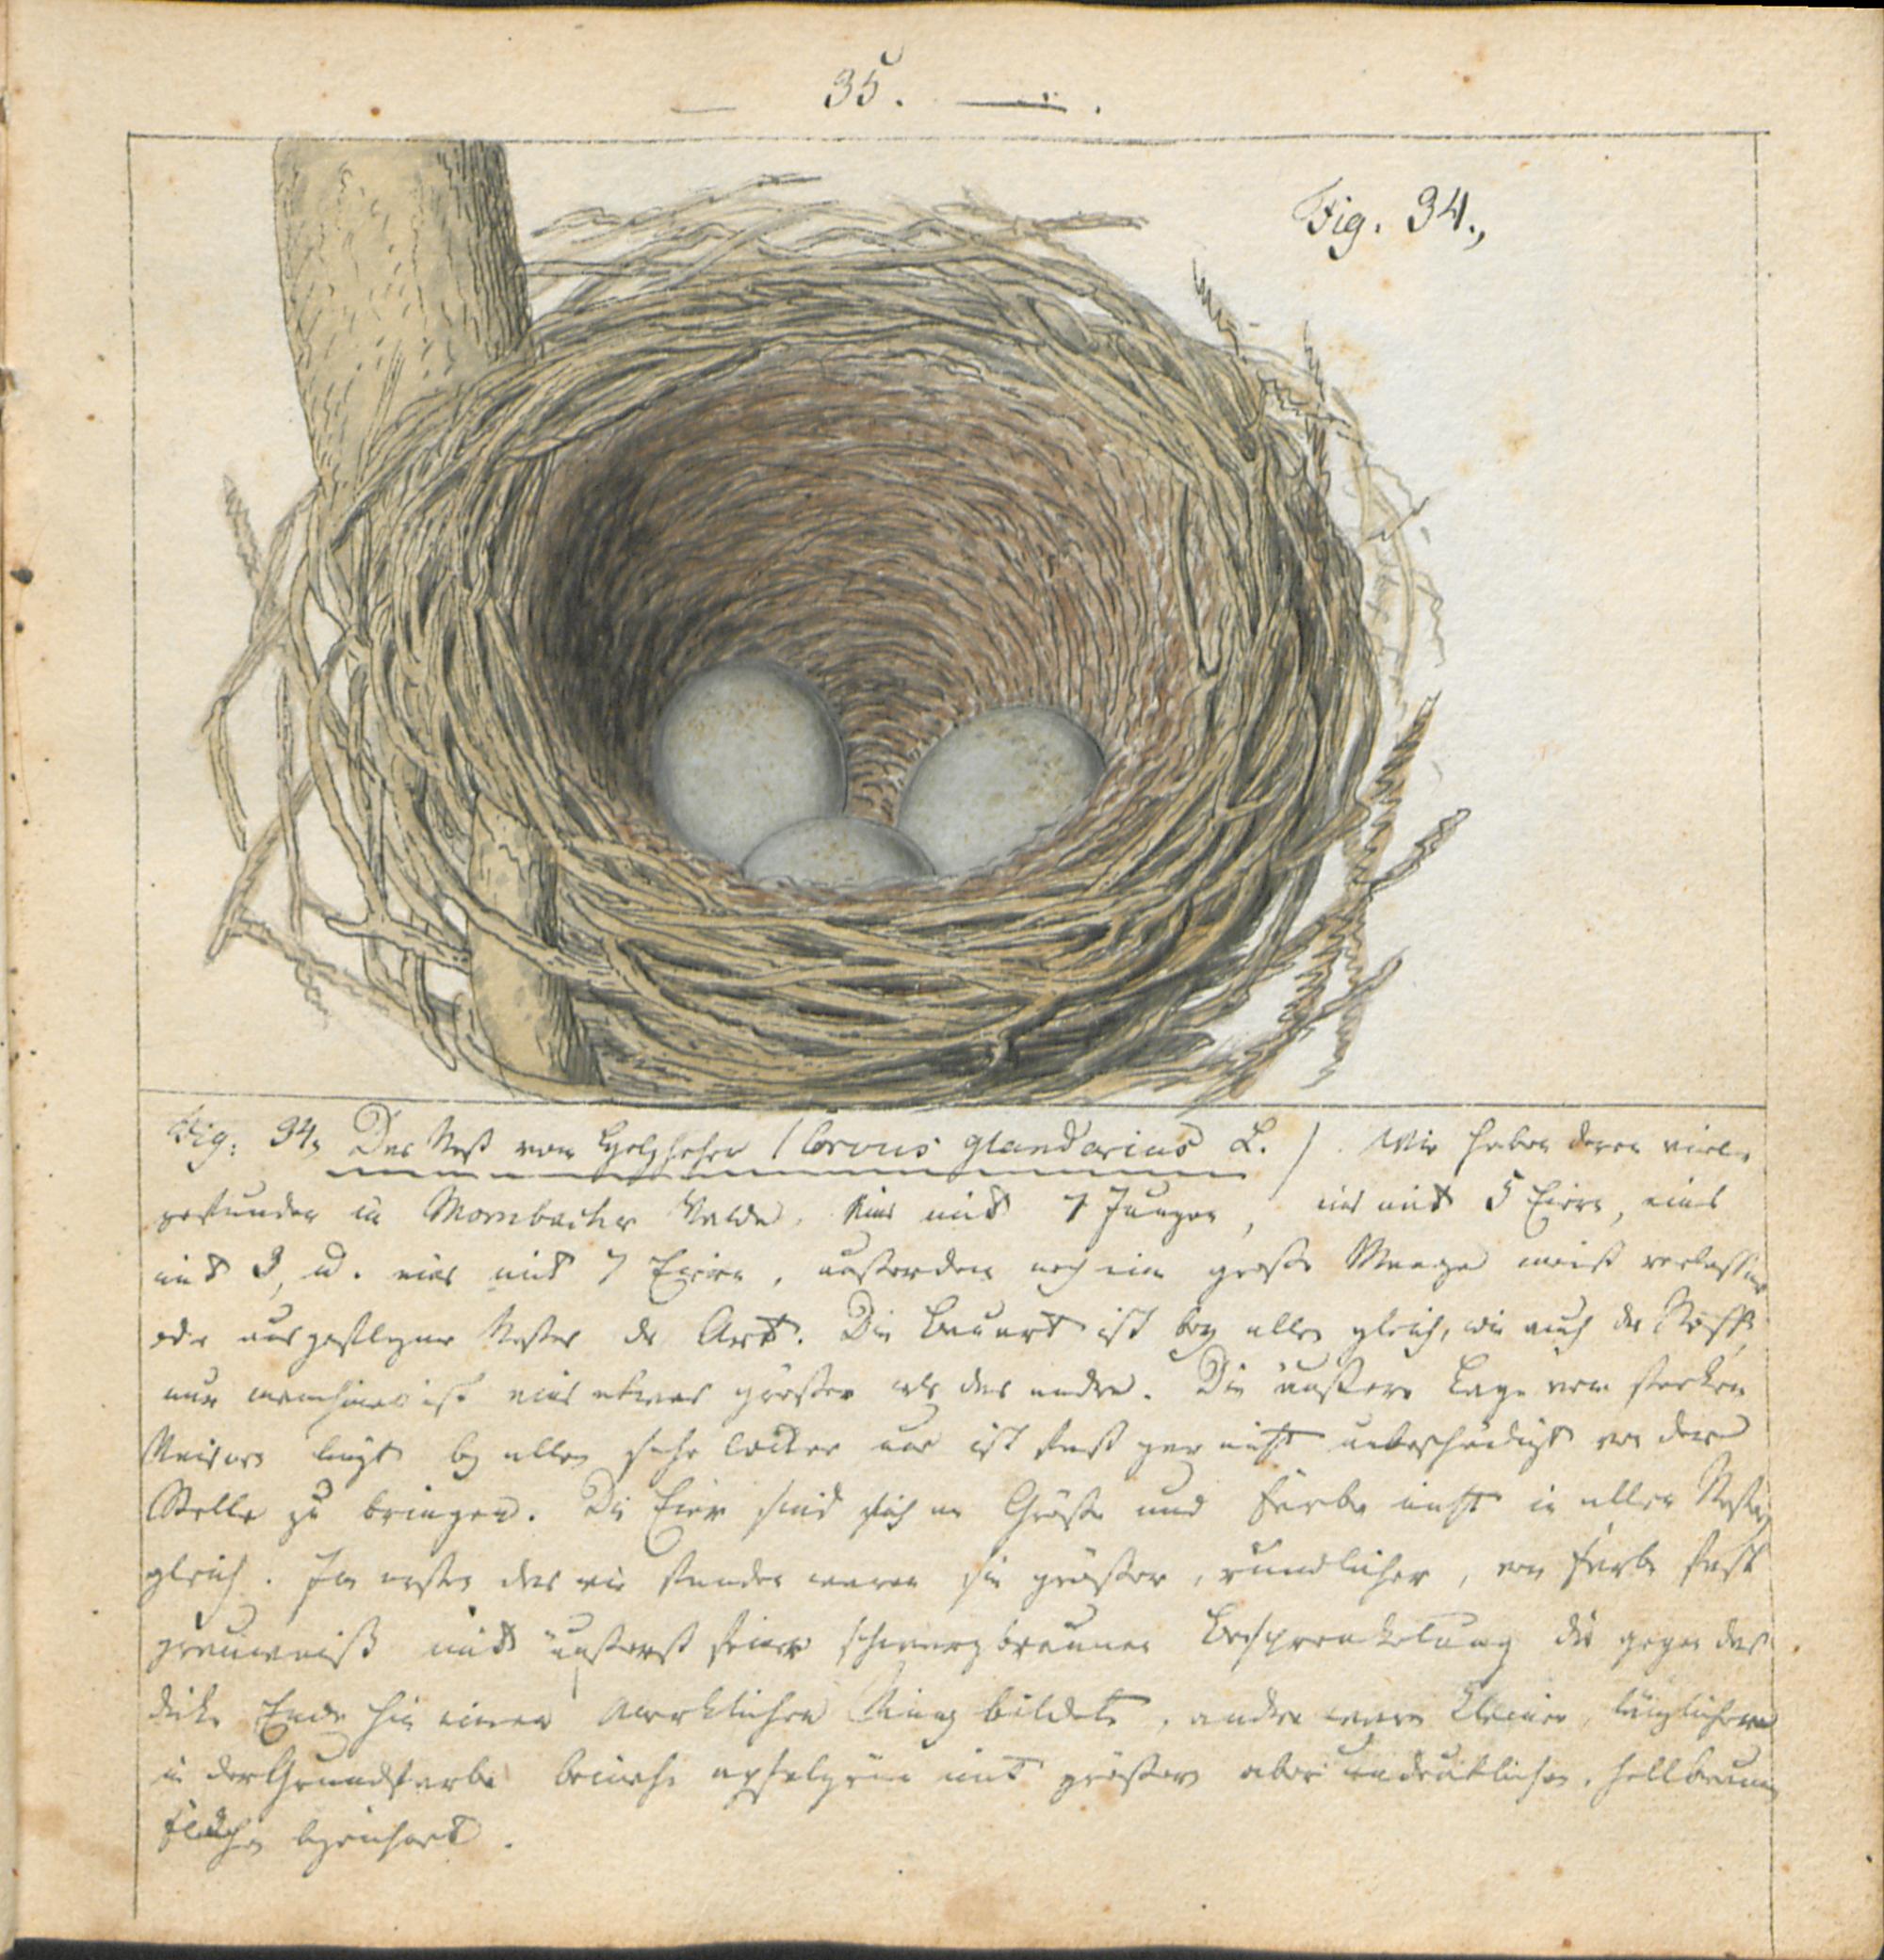 35.
Fig. 34.,
Fig: 34. Das Nest vom Holzheher (Corvus glandarius L.). Wir haben deren viele
gefunden im Mombacher Walde. Eins mit 7 Jungen, eins mit 5 Eiern, eins
mit 3, u. eins mit 7 Eiern, außerdem noch eine große Menge meist verlassner
oder ausgeflogner Nester der Art. Die Bauart ist bey allen gleich, wie auch der Stoff,
nur manchmal ist eins etwas größer als das andre. Die äußere Lage von starken
Reisern liegt bey allen sehr locker und ist fast gar nicht unbeschädigt von der
Stelle zu bringen. Die Eier sind sich an Größe und Farbe nicht in allen Nestern
gleich. Im ersten das wir fanden waren sie größer, rundlicher, von Farbe fast
grauweiß mit äußerst feiner schwarzbrauner Besprenkelung die gegen das
dicke Ende hin einen merklichen Ring bildete, andre waren kleiner, länglicher
in der Grundfarbe beinahe apfelgrün mit größern aber undeutlichen, hellbraunen
Flecken bezeichnet.